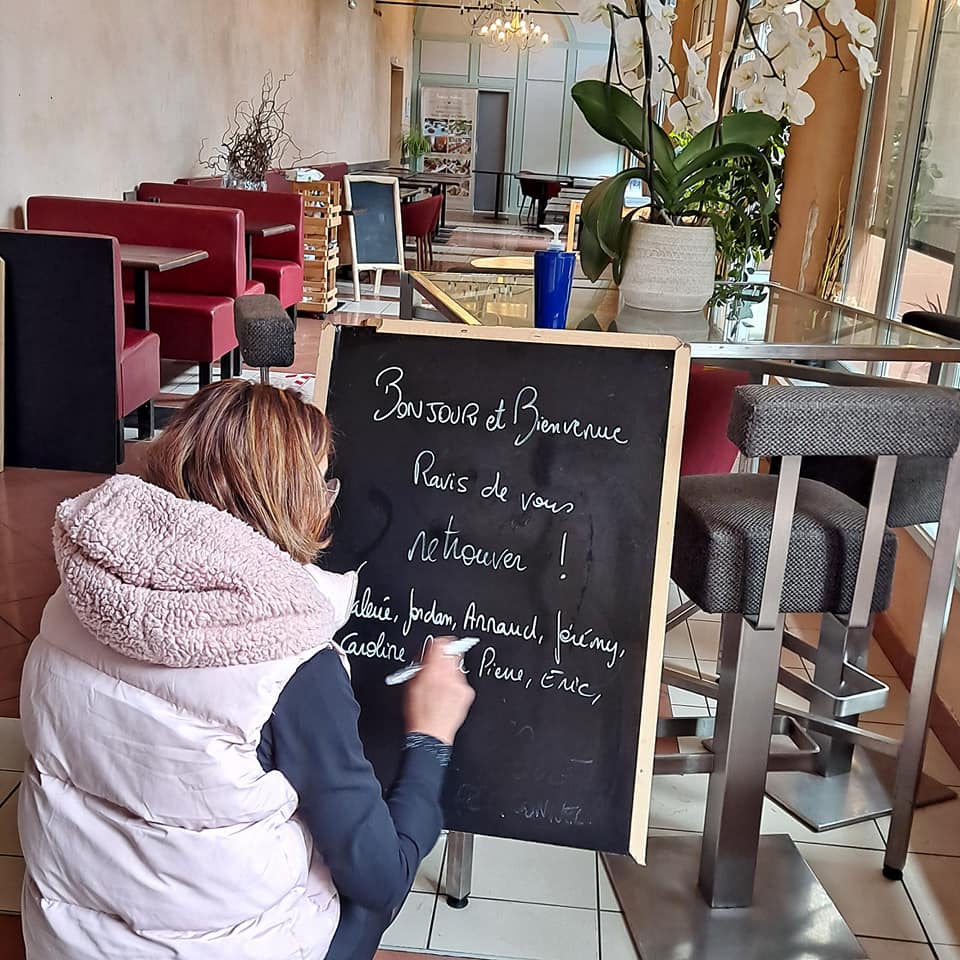 BONJOUR et Bienvenue
Ravis de vous
retrouver !
Valerie, Jordan, Arnaud, Jérémy,
Caroline Pierre, Eric,